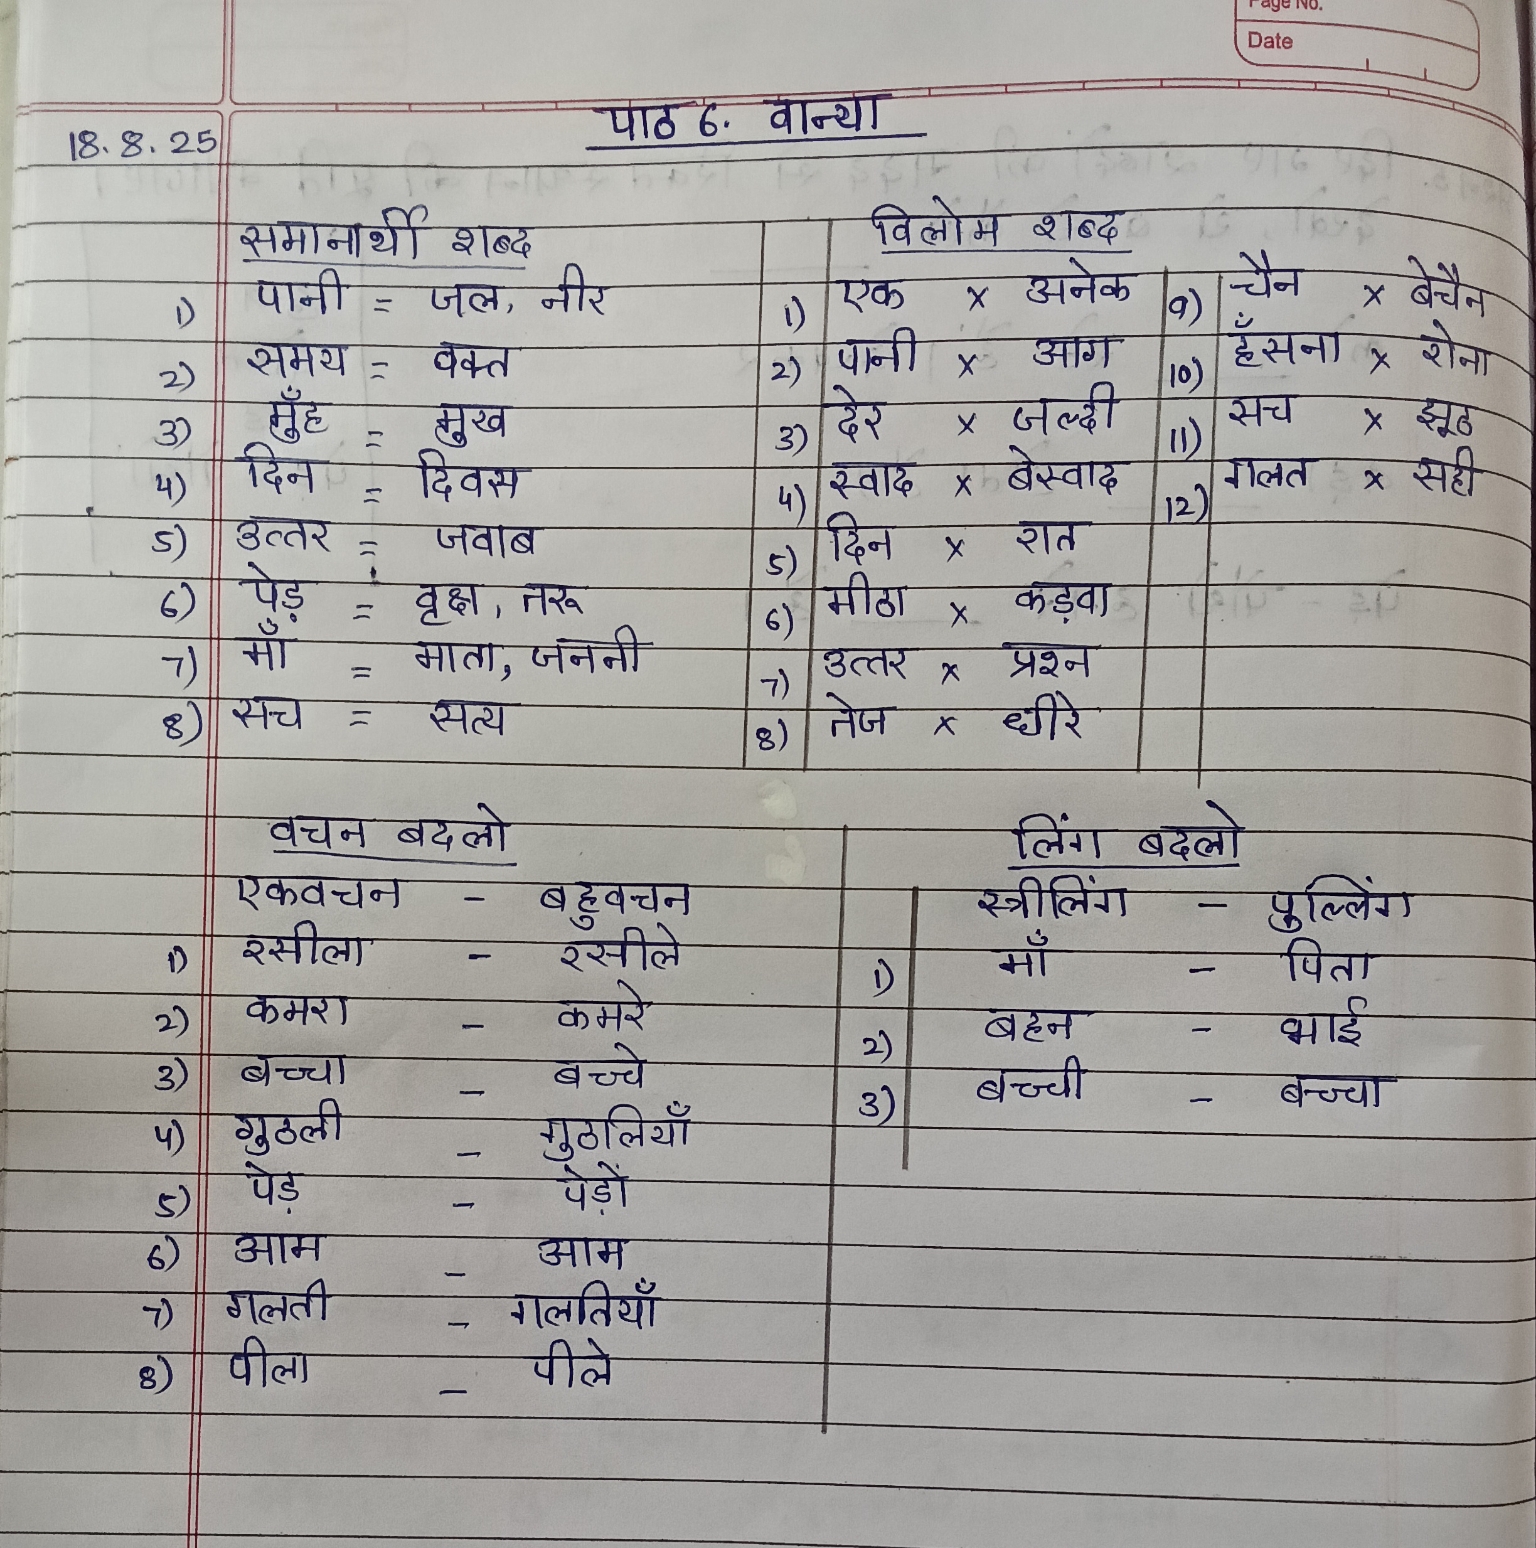 Page No.
Date
18.8.25
पाठ 6. वान्या
समानार्थी शब्द
1) पानी = जल, नीर
2) समय = वक्त
3) मुँह = मुख
4) दिन = दिवस
5) उत्तर = जवाब
6) पेड़ = वृक्ष, तरू
7) माँ = माता, जननी
8) सच = सत्य
विलोम शब्द
1) एक × अनेक
2) पानी × आग
3) देर × जल्दी
4) स्वाद × बेस्वाद
5) दिन × रात
6) मीठा × कड़वा
7) उत्तर × प्रश्न
8) तेज × धीरे
9) चैन × बेचैन
10) हँसना × रोना
11) सच × झूठ
12) गलत × सही
वचन बदलो
एकवचन - बहुवचन
1) रसीला - रसीले
2) कमरा - कमरे
3) बच्चा - बच्चे
4) गुठली - गुठलियाँ
5) पेड़ - पेड़ों
6) आम - आम
7) गलती - गलतियाँ
8) पीला - पीले
लिंग बदलो
स्त्रीलिंग - पुल्लिंग
1) माँ - पिता
2) बहन - भाई
3) बच्ची - बच्चा